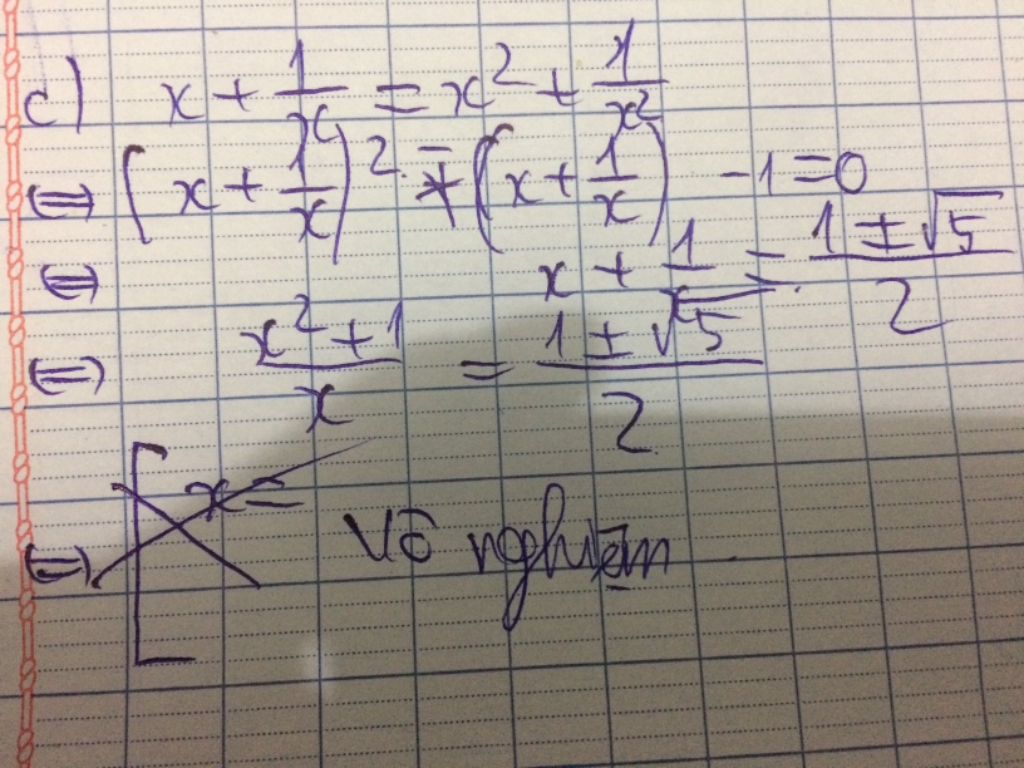 c) x + 1/x = x² + 1/x²
⇔ (x + 1/x)² - (x + 1/x) - 1 = 0
⇔ x + 1/x = (1 ± √5)/2
⇔ (x² + 1)/x = (1 ± √5)/2
⇔ [ x = vô nghiệm